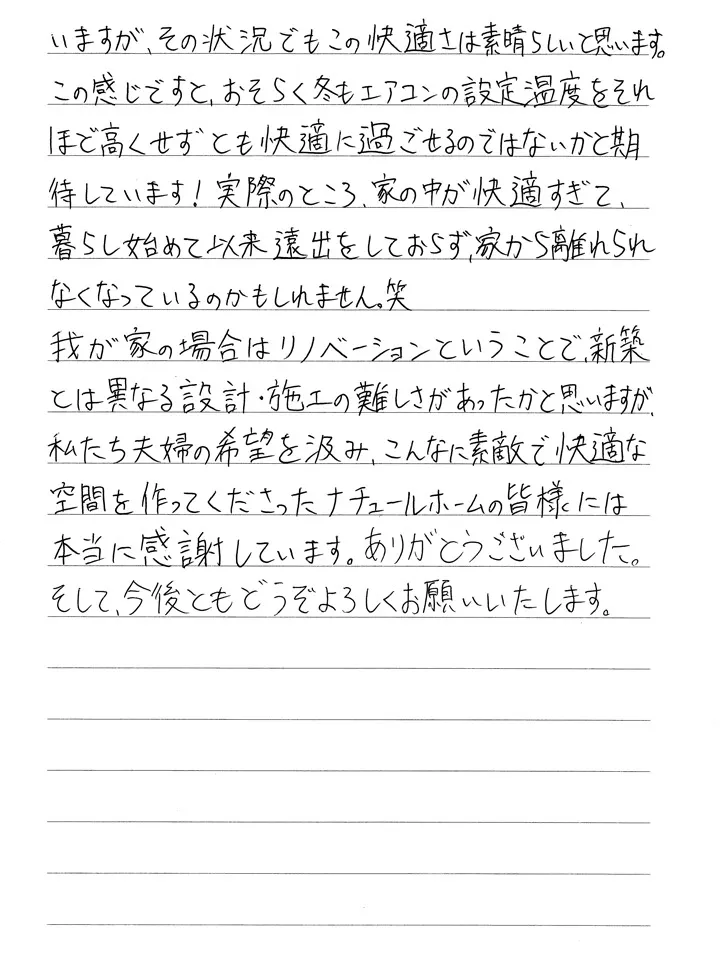 いますが、その状況でもこの快適さは素晴らしいと思います。
この感じですと、おそらく冬もエアコンの設定温度をそれ
ほど高くせずとも快適に過ごせるのではないかと期
待しています！実際のところ、家の中が快適すぎて、
暮らし始めて以来遠出をしておらず、家から離れられ
なくなっているのかもしれません。笑
我が家の場合はリノベーションということで、新築
とは異なる設計・施工の難しさがあったかと思いますが、
私たち夫婦の希望を汲み、こんなに素敵で快適な
空間を作ってくださったナチュールホームの皆様には
本当に感謝しています。ありがとうございました。
そして、今後ともどうぞよろしくお願いいたします。